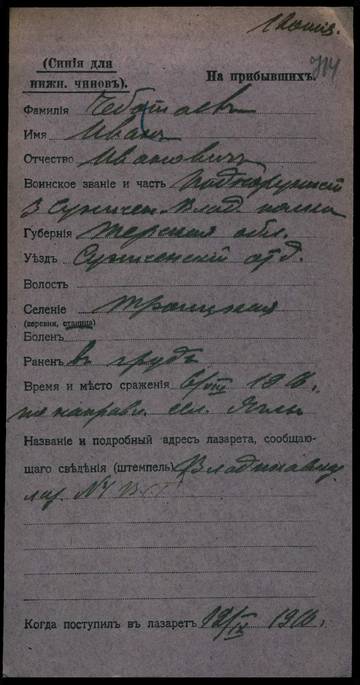 1 копія.
714
(Синія для
нижн. чиновъ).
На прибывшихъ.
Фамилія Чеботаевъ
Имя Иванъ
Отчество Ивановичъ
Воинское званіе и часть Подхорунжій
3 Сунжен.-Влад. полка
Губернія Терская обл.
Уѣздъ Сунженскій отд.
Волость
Селеніе Троицкая
(деревня, станица)
Боленъ
Раненъ въ грудь
Время и мѣсто сраженія 6/VIII 1916.
по направ. сел.
Названіе и подробный адресъ лазарета, сообщаю-
щаго свѣдѣнія (штемпель) Владикавказ.
лаз. №
Когда поступилъ въ лазаретъ 12/IX 1916.